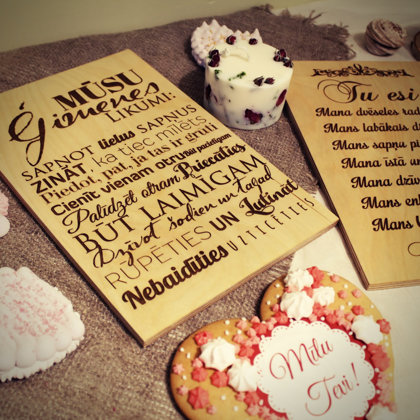 MŪSU
Ģimenes
LIKUMI:
SAPŅOT lielus SAPŅUS
ZINĀT, ka tiec mīlēts
Piedot, pat, ja tas ir grūti
Cienīt vienam otru
Būt pacietīgam
Palīdzēt otram Priecāties
BŪT LAIMĪGAM
Dzīvot šodien un tagad
RŪPĒTIES UN Lutināt
Nebaidīties UZTICĒTIES
Tu esi
Mana dvēseles rad
Mans labākais d
Mans sapņu pi
Mana īstā
Mana dzīv
Mans enģ
Mans
Mīlu
Tevi!